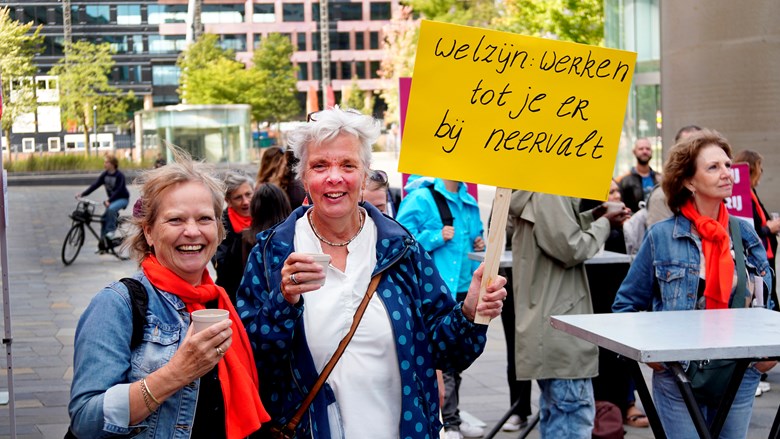 Welzijn: werken
tot je er
bij neervalt